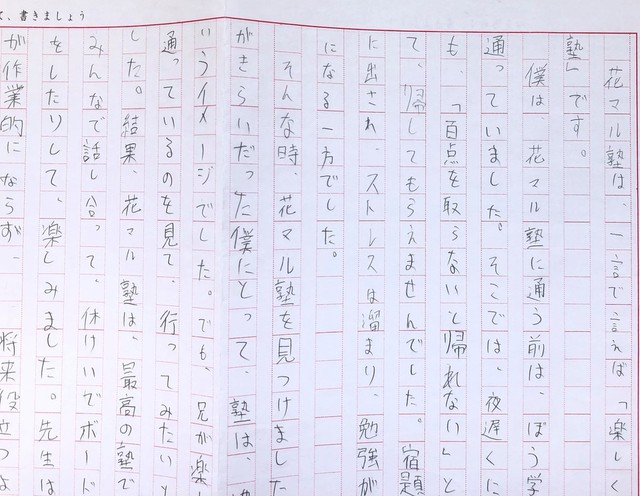 て、書きましょう
花マル塾は、一言で言えば「楽しく
塾」です。
僕は、花マル塾に通う前は、ぼう学
通っていました。そこでは、夜遅くに
も、「百点を取らないと帰れない」と
て、帰してもらえませんでした。宿題
に出され、ストレスは溜まり、勉強が
になる一方でした。
そんな時、花マル塾を見つけました
がきらいだった僕にとって、塾は、
いうイメージでした。でも、兄が楽し
通っているのを見て、行ってみたいと
した。結果、花マル塾は、最高の塾で
みんなで話し合って、休けいでボード
をしたりして、楽しみました。先生は
が作業的にならず、将来役立つよ